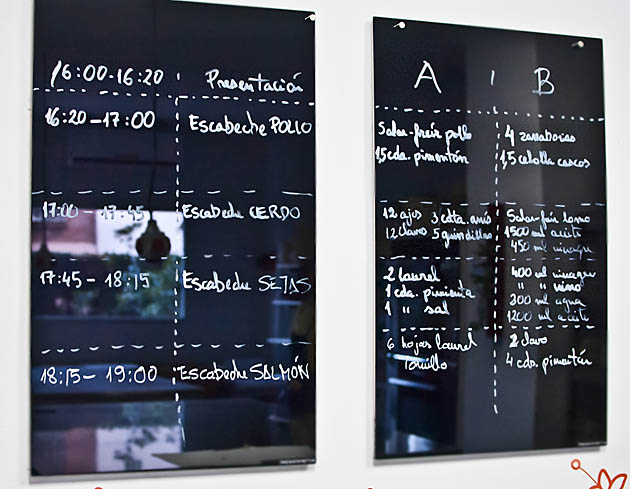 16:00-16:20 Presentación
16:20-17:00 Escabeche POLLO
17:00-17:45 Escabeche CERDO
17:45-18:15 Escabeche SETAS
18:15-19:00 Escabeche SALMÓN
A B
Salar-freír pollo
1,5 cda. pimentón
4 zanahorias
1,5 cebolla cascos
12 ajos 3 cdta. anís
12 clavo 5 guindillas
Salar-freír lomo
1500 ml aceite
450 ml vinagre
2 laurel
1 cda. pimienta
1 " sal
400 ml vinagre
" " vino
300 ml agua
1200 ml aceite
6 hojas laurel
tomillo
2 clavo
4 cda. pimentón